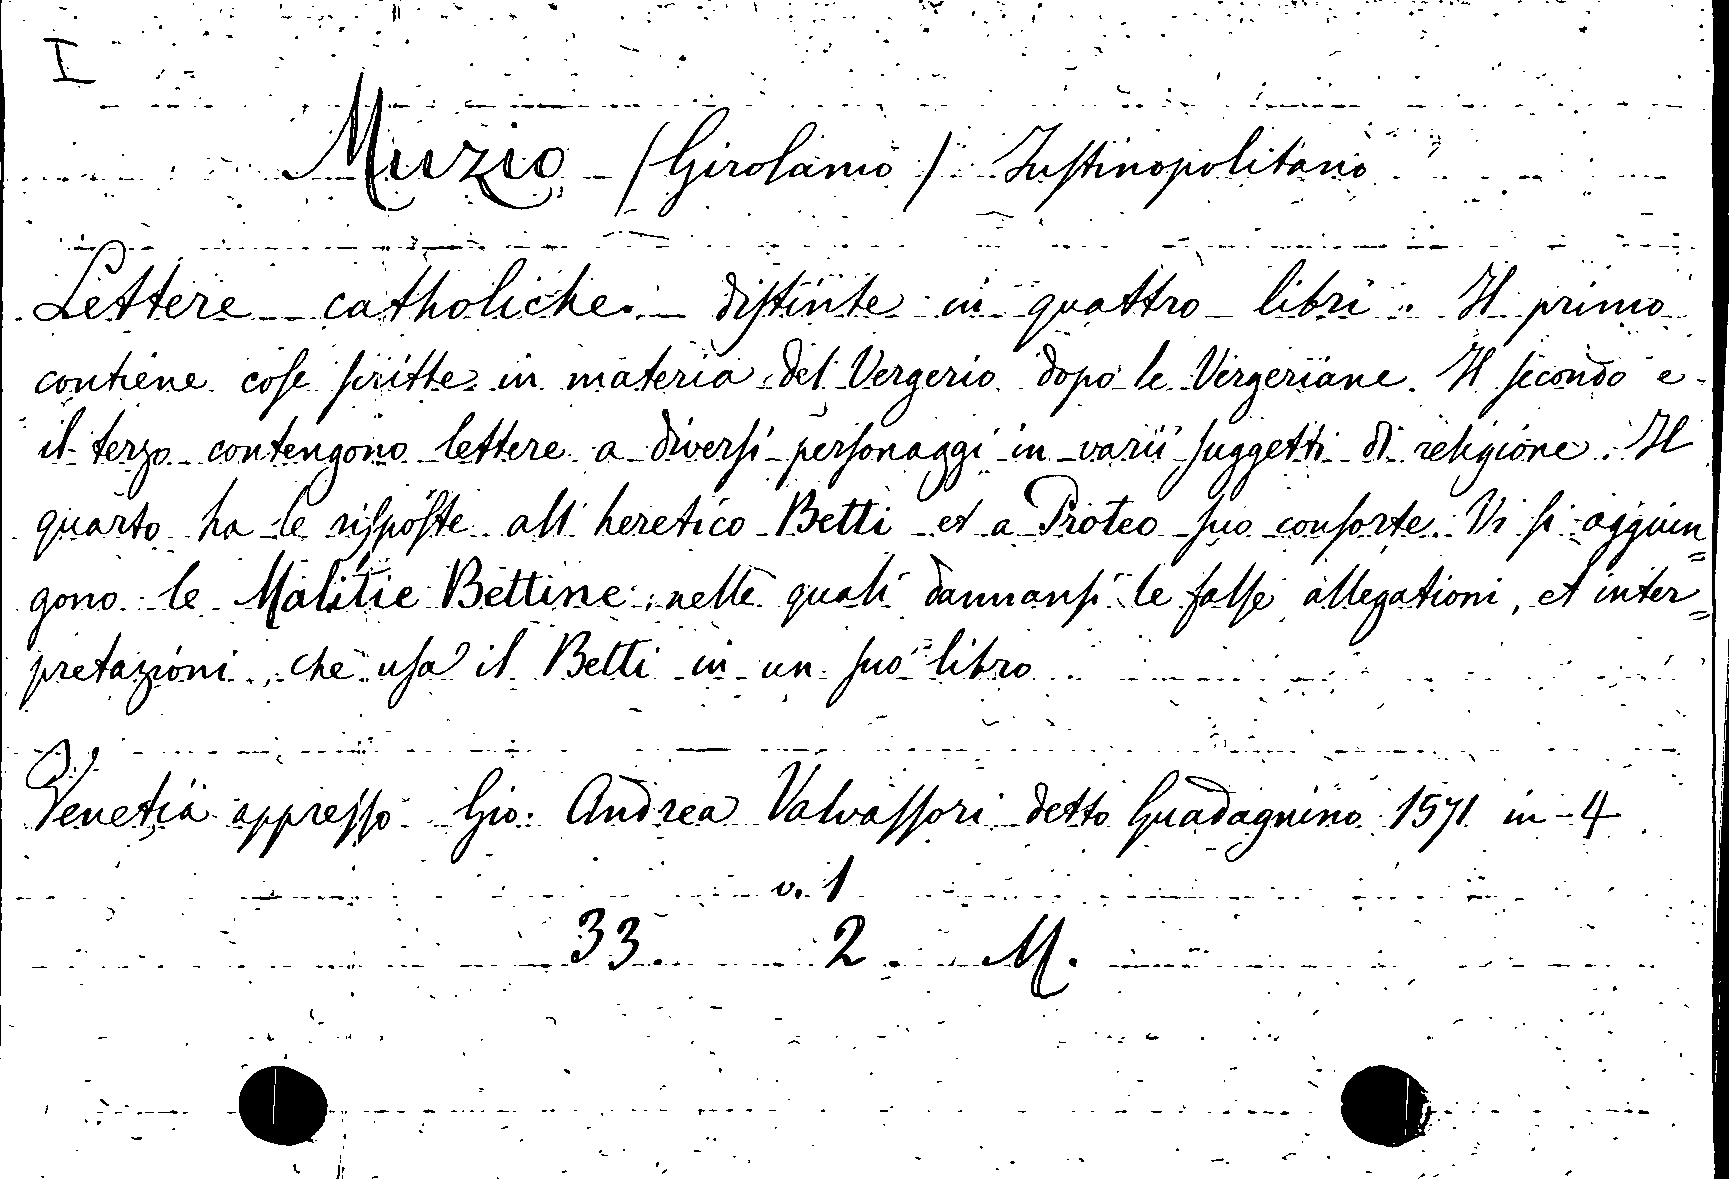 I
Muzio (Girolamo) Iustinopolitano
Lettere catholiche. distinte in quattro libri. Il primo
contiene cose scritte in materia del Vergerio dopo le Vergeriane. Il secondo e
il terzo contengono lettere a diversi personaggi in varii suggetti di religione. Il
quarto ha le risposte all' heretico Betti et a Proteo suo consorte. Vi si aggiun=
gono le Malitie Bettine: nelle quali dannansi le false allegationi, et inter=
pretazioni, che usa il Betti in un suo libro
Venetia appresso Gio: Andrea Valvassori detto Guadagnino 1571 in-4
v. 1
33. 2. M.